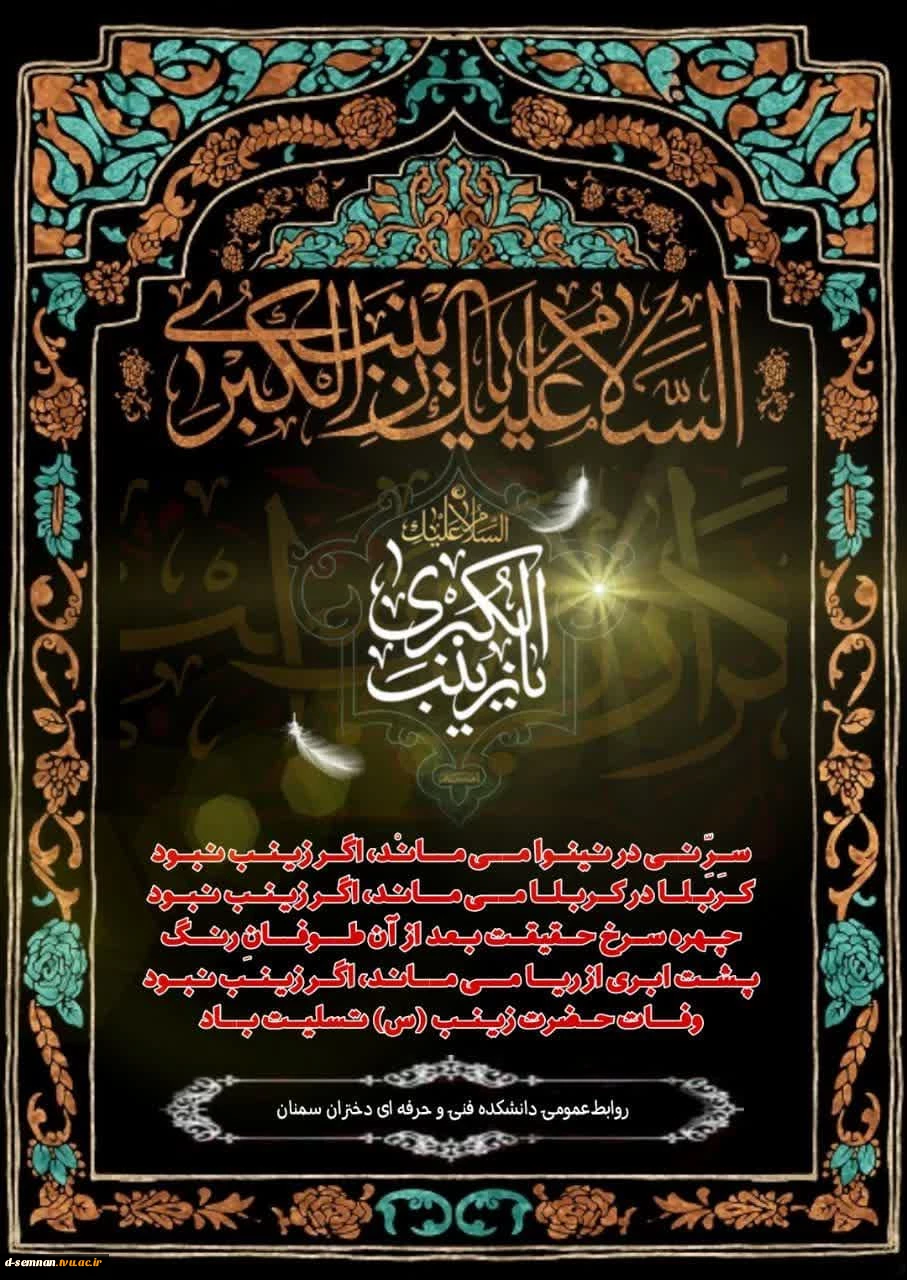 السَّلامُ عَلَيكِ يا زَينَبَ الكُبرىٰ
السَّلامُ عَلَيكِ
يا زينب الكبرى
سِرِّ نی در نینوا می مانْد، اگر زینب نبود
کربلا در کربلا می ماند، اگر زینب نبود
چهره سرخ حقیقت بعد از آن طوفانِ رنگ
پشت ابری از ریا می ماند، اگر زینب نبود
وفات حضرت زینب (س) تسلیت باد
روابط عمومی دانشکده فنی و حرفه ای دختران سمنان
d-semnan.tvu.ac.ir